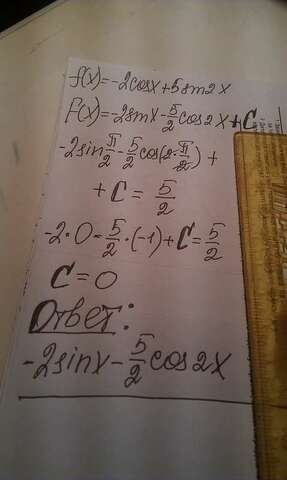 f(x)=-2cosx+5sin2x
F(x)=-2sinx-5/2cos2x+C
-2sin π/2 - 5/2 cos(2·π/2)+
+C = 5/2
-2·0-5/2·(-1)+C=5/2
C=0
Ответ:
-2sinx-5/2cos2x